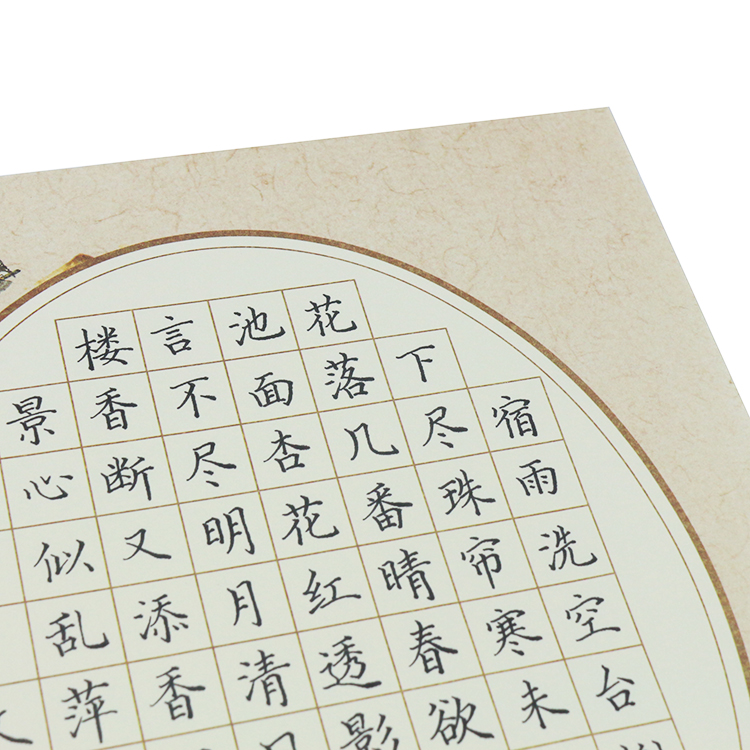 宿雨洗空台
下尽珠帘寒未
花落几番晴春欲
池面杏花红透影
言不尽明月清
楼香断又添香
景心似乱萍